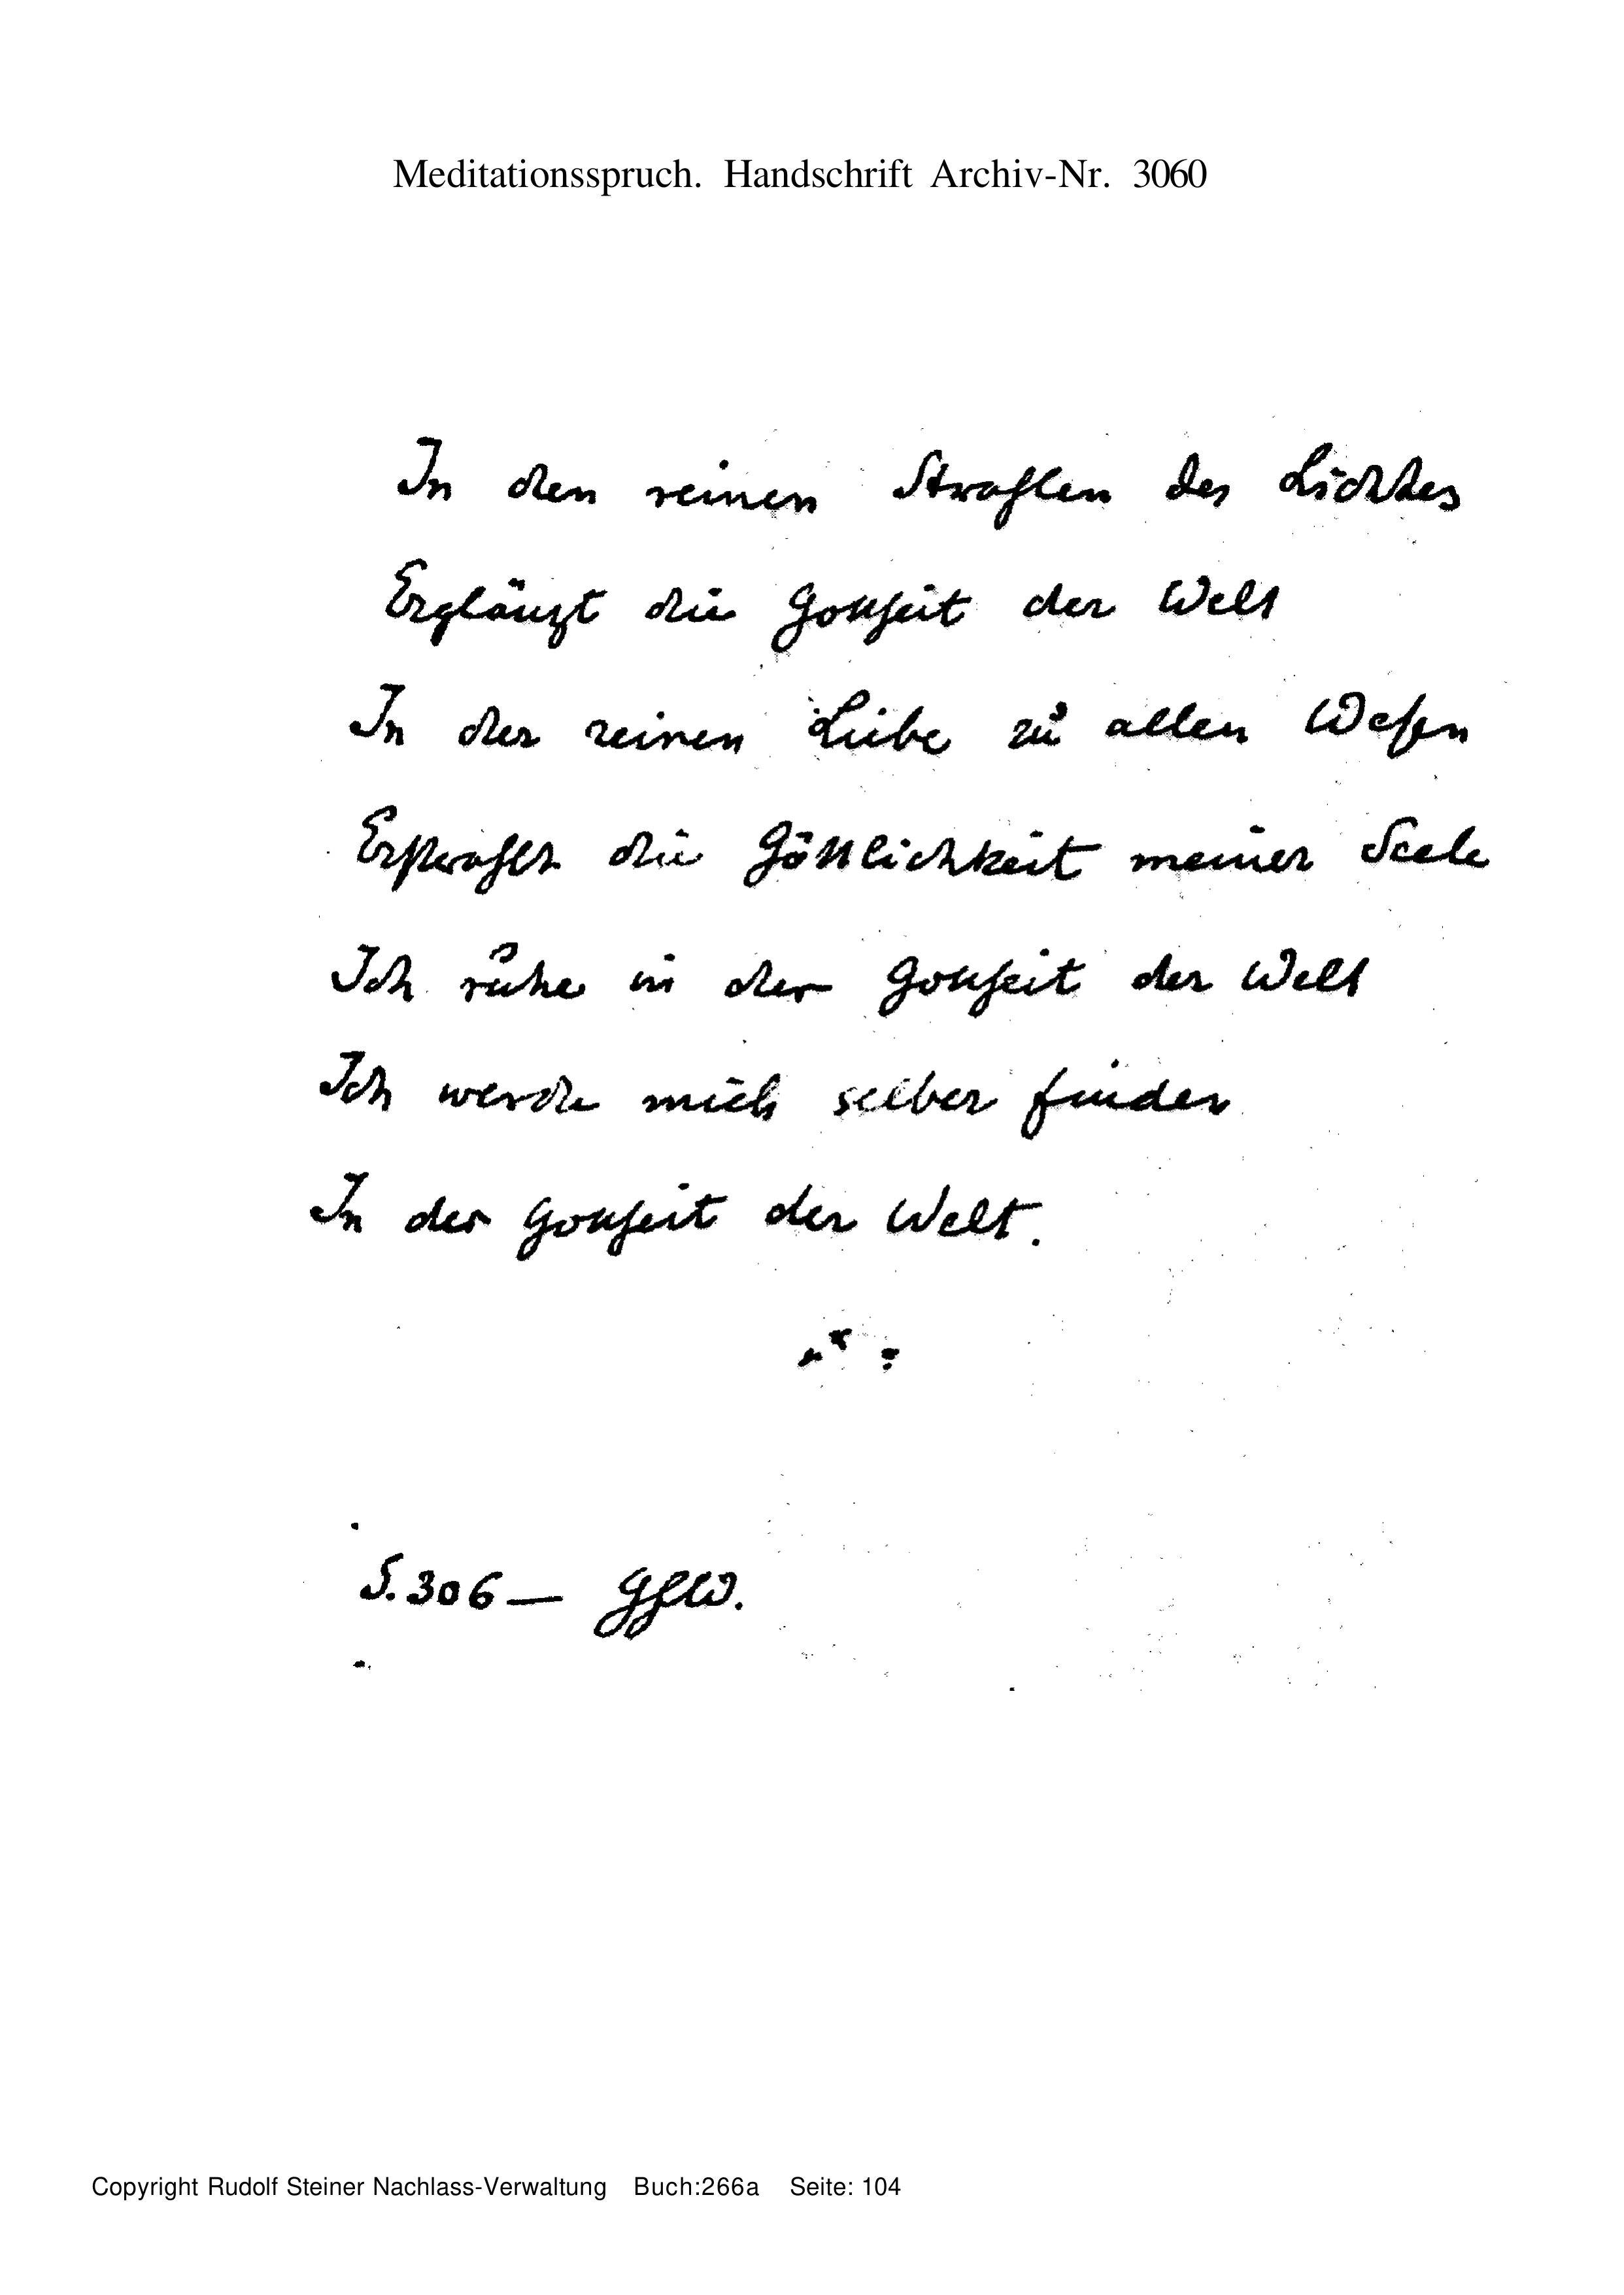 Meditationsspruch. Handschrift Archiv-Nr. 3060
In den reinen Strahlen des Lichtes
Erglänzt die Gottheit der Welt
In der reinen Liebe zu allen Wesen
Erstrahlt die Göttlichkeit meiner Seele
Ich ruhe in der Gottheit der Welt
Ich werde mich selber finden
In der Gottheit der Welt.
S. 306—
Copyright Rudolf Steiner Nachlass-Verwaltung Buch:266a Seite: 104